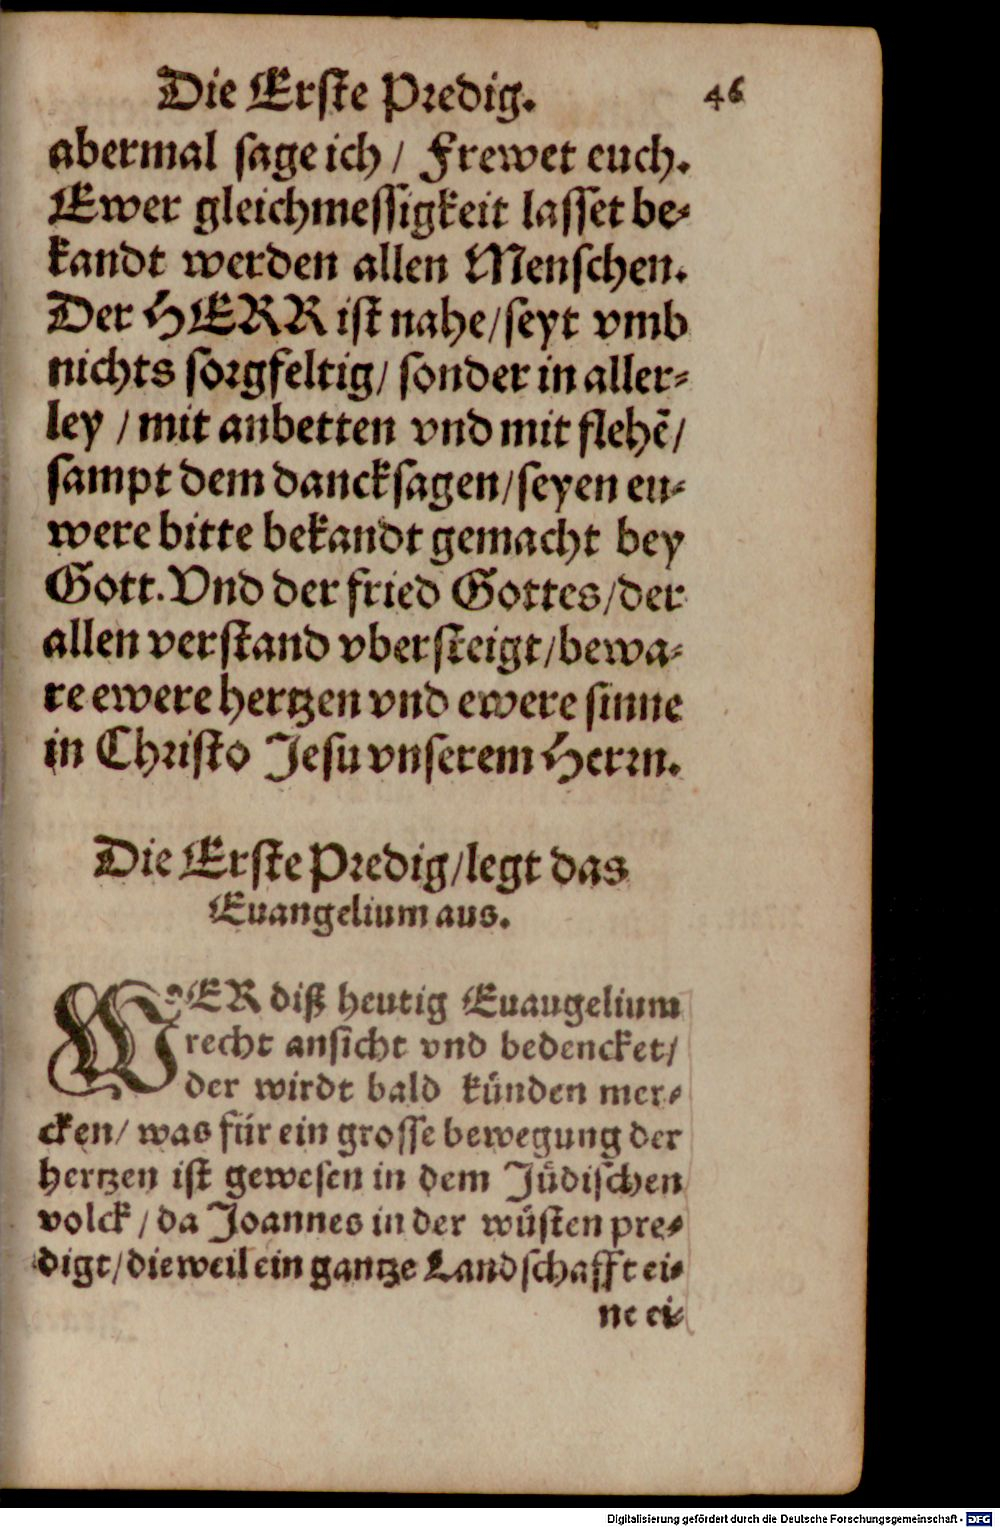 Die Erste Predig. 46
abermal sage ich / Frewet euch.
Ewer gleichmessigkeit lasset be⸗
kandt werden allen Menschen.
Der HERR ist nahe/seyt vmb
nichts sorgfeltig/ sonder in aller⸗
ley / mit anbetten vnd mit flehẽ/
sampt dem dancksagen/seyen eu⸗
were bitte bekandt gemacht bey
Gott. Vnd der fried Gottes/der
allen verstand vbersteigt/bewa⸗
re ewere hertzen vnd ewere sinne
in Christo Jesu vnserem Herrn.
Die Erste Predig/legt das
Euangelium aus.
WER diß heutig Euangelium
recht ansicht vnd bedencket/
der wirdt bald künden mer⸗
cken/ was für ein grosse bewegung der
hertzen ist gewesen in dem Jüdischen
volck / da Joannes in der wüsten pre⸗
digt/dieweil ein gantze Landschafft ei⸗
ne ei⸗
Digitalisierung gefördert durch die Deutsche Forschungsgemeinschaft - DFG